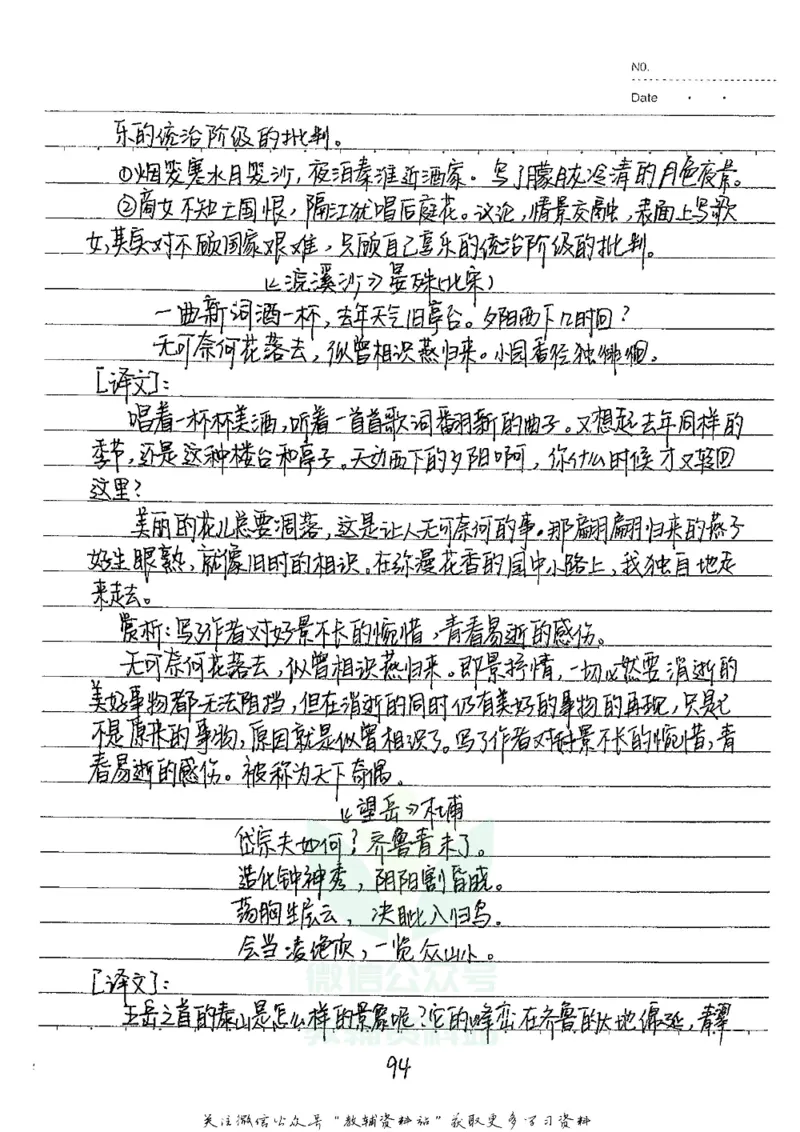 NO.
Date
乐的统治阶级的批判。
①烟笼寒水月笼沙，夜泊秦淮近酒家。写了朦胧冷清的月色夜景。
②商女不知亡国恨，隔江犹唱后庭花。议论，情景交融，表面上写歌
女，其实对不顾国家艰难，只顾自己享乐的统治阶级的批判。
《浣溪沙》晏殊（北宋）
一曲新词酒一杯，去年天气旧亭台。夕阳西下几时回？
无可奈何花落去，似曾相识燕归来。小园香径独徘徊。
[译文]：
唱着一杯杯美酒，听着一首首歌词翻新的曲子。又想起去年同样的
季节，还是这种楼台和亭子。天边西下的夕阳啊，你什么时候才又轻回
这里？
美丽的花儿总要凋落，这是让人无可奈何的事。那翩翩归来的燕子
好生眼熟，就像旧时的相识。在弥漫花香的园中小路上，我独自地走
来走去。
赏析：写了作者对好景不长的惋惜，青春易逝的感伤。
无可奈何花落去，似曾相识燕归来。即景抒情，一切必然要消逝的
美好事物都无法阻挡，但在消逝的同时仍有美好的事物的再现，只是它
不是原来的事物，原因就是似曾相识了。写了作者对好景不长的惋惜，青
春易逝的感伤。被称为天下奇偶。
《望岳》杜甫
岱宗夫如何？齐鲁青未了。
造化钟神秀，阴阳割昏晓。
荡胸生层云，决眦入归鸟。
会当凌绝顶，一览众山小。
[译文]：
五岳之首的泰山是怎么样的景象呢？它的峰峦在齐鲁的大地绵延，青翠
微信公众号
教辅资料站
94
关注微信公众号"教辅资料站"获取更多学习资料